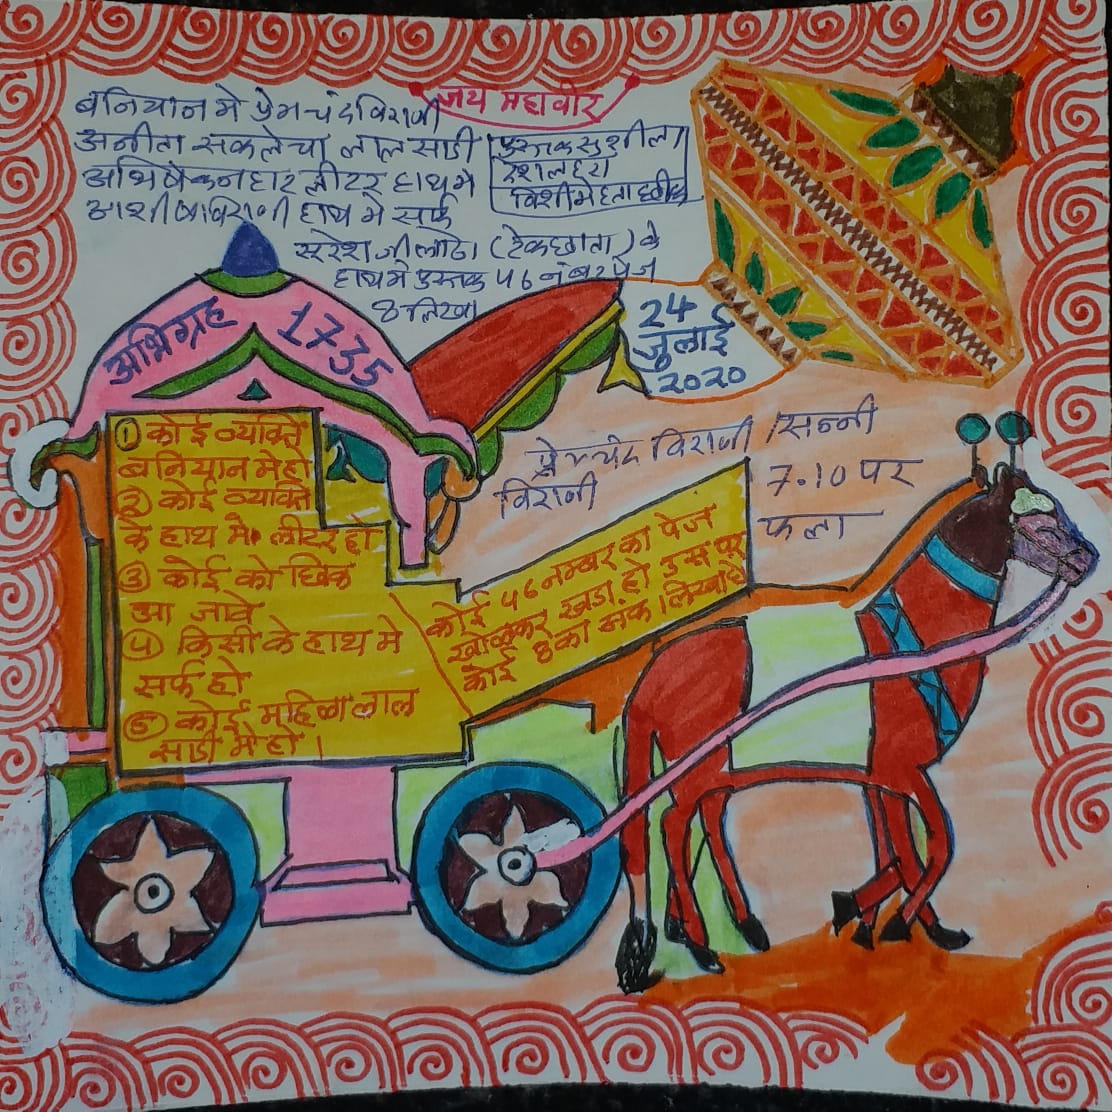 जय महावीर
बनियान मे प्रेमचंद विराणी
अनीता सकलेचा लाल साडी
अभिषेक नहार लीटर हाथ मे
आशीष विराणी हाथ मे सर्फ
पुस्तक सुशीला
विशी मेहता छींक
सुरेश जी लोढा (टेकछाता) के
हाथ मे पुस्तक ५६ नंबर पेज
8 लिखा
24
जुलाई
2020
अभिग्रह 1735
① कोई व्यक्ति
बनियान मे हो
② कोई व्यक्ति
के हाथ मे लीटर हो
③ कोई को छिंक
आ जावे
④ किसी के हाथ मे
सर्फ हो
⑤ कोई महिला लाल
साडी मे हो ।
कोई ५६ नम्बर का पेज
खोलकर खडा हो उस पर
कोई 8 का अंक लिखा हो
प्रेमचंद विराणी / सन्नी
विराणी
7.10 पर
फला